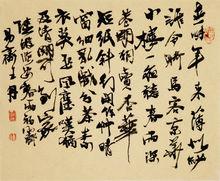 世味年来薄似紗
誰令騎馬客京華
小樓一夜聽春雨深
巷明朝賣杏華矮
紙斜行閑作草晴
窗細乳戲分茶素
衣莫起風塵嘆猶
及清明可到家
陸游臨安春雨初霽